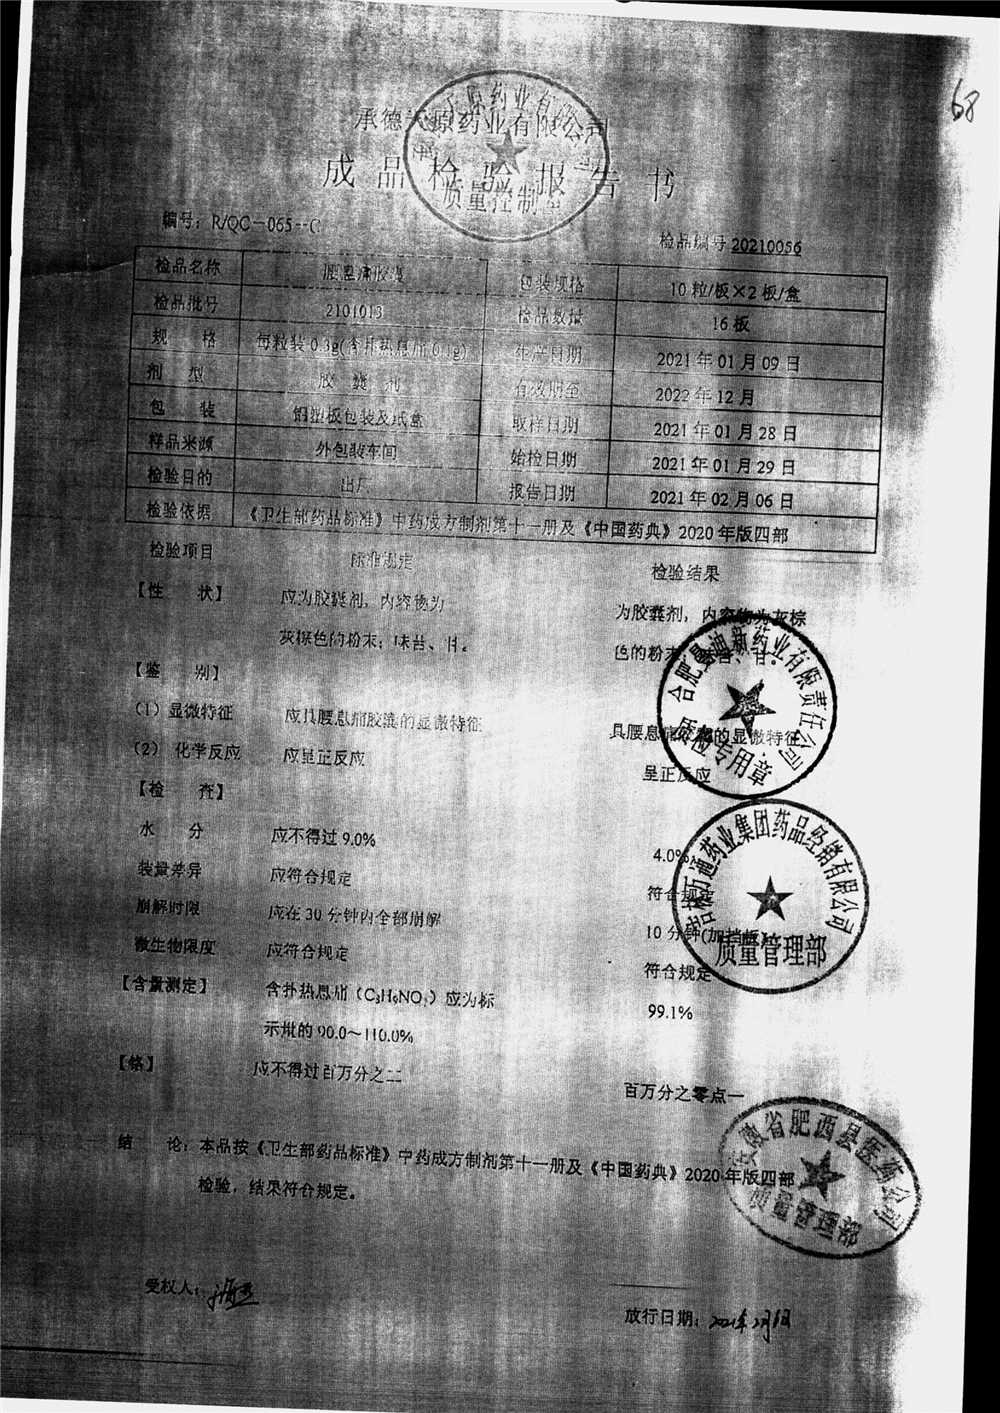 68
承德天原药业有限公司
成品检验报告书
质量控制
编号：R/QC－065－C
检品编号 20210056
检品名称 腰息痛胶囊 包装规格 10 粒/板×2 板/盒
检品批号 2101013 检品数量 16 板
规 格 每粒装 0.3g(含扑热息痛 0.1g) 生产日期 2021 年 01 月 09 日
剂 型 胶 囊 剂 有效期至 2022 年 12 月
包 装 铝塑板包装及纸盒 取样日期 2021 年 01 月 28 日
样品来源 外包装车间 始检日期 2021 年 01 月 29 日
检验目的 出厂 报告日期 2021 年 02 月 06 日
检验依据 《卫生部药品标准》中药成方制剂第十一册及《中国药典》2020 年版四部
检验项目 标准规定 检验结果
【性 状】 应为胶囊剂，内容物为 为胶囊剂，内容物为灰棕
灰棕色的粉末；味苦、甘。 色的粉末；味苦、甘。
【鉴 别】
（1）显微特征 应具腰息痛胶囊的显微特征 具腰息痛胶囊的显微特征
（2） 化学反应 应呈正反应 呈正反应
合肥曼迪新药业有限责任公司
质检专用章
【检 查】
水 分 应不得过 9.0% 4.0%
装量差异 应符合规定 符合规定
崩解时限 应在 30 分钟内全部崩解 10 分钟(加挡板)
微生物限度 应符合规定 符合规定
吉林万通药业集团药品经销有限公司
质量管理部
【含量测定】 含扑热息痛（C₈H₉NO₂）应为标 99.1%
示量的 90.0～110.0%
【铬】 应不得过百万分之二 百万分之零点一
结 论：本品按《卫生部药品标准》中药成方制剂第十一册及《中国药典》2020 年版四部
检验，结果符合规定。
安徽省肥西县医药公司
质量管理部
受权人：
放行日期：2021年2月6日